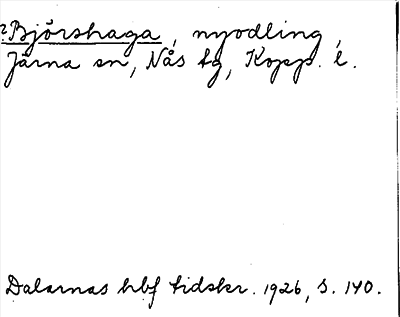 ?Bjórshaga, nyodling,
Järna sn, Nås tg, Kopp. l.
Dalarnas hbf tidskr. 1926, s. 140.